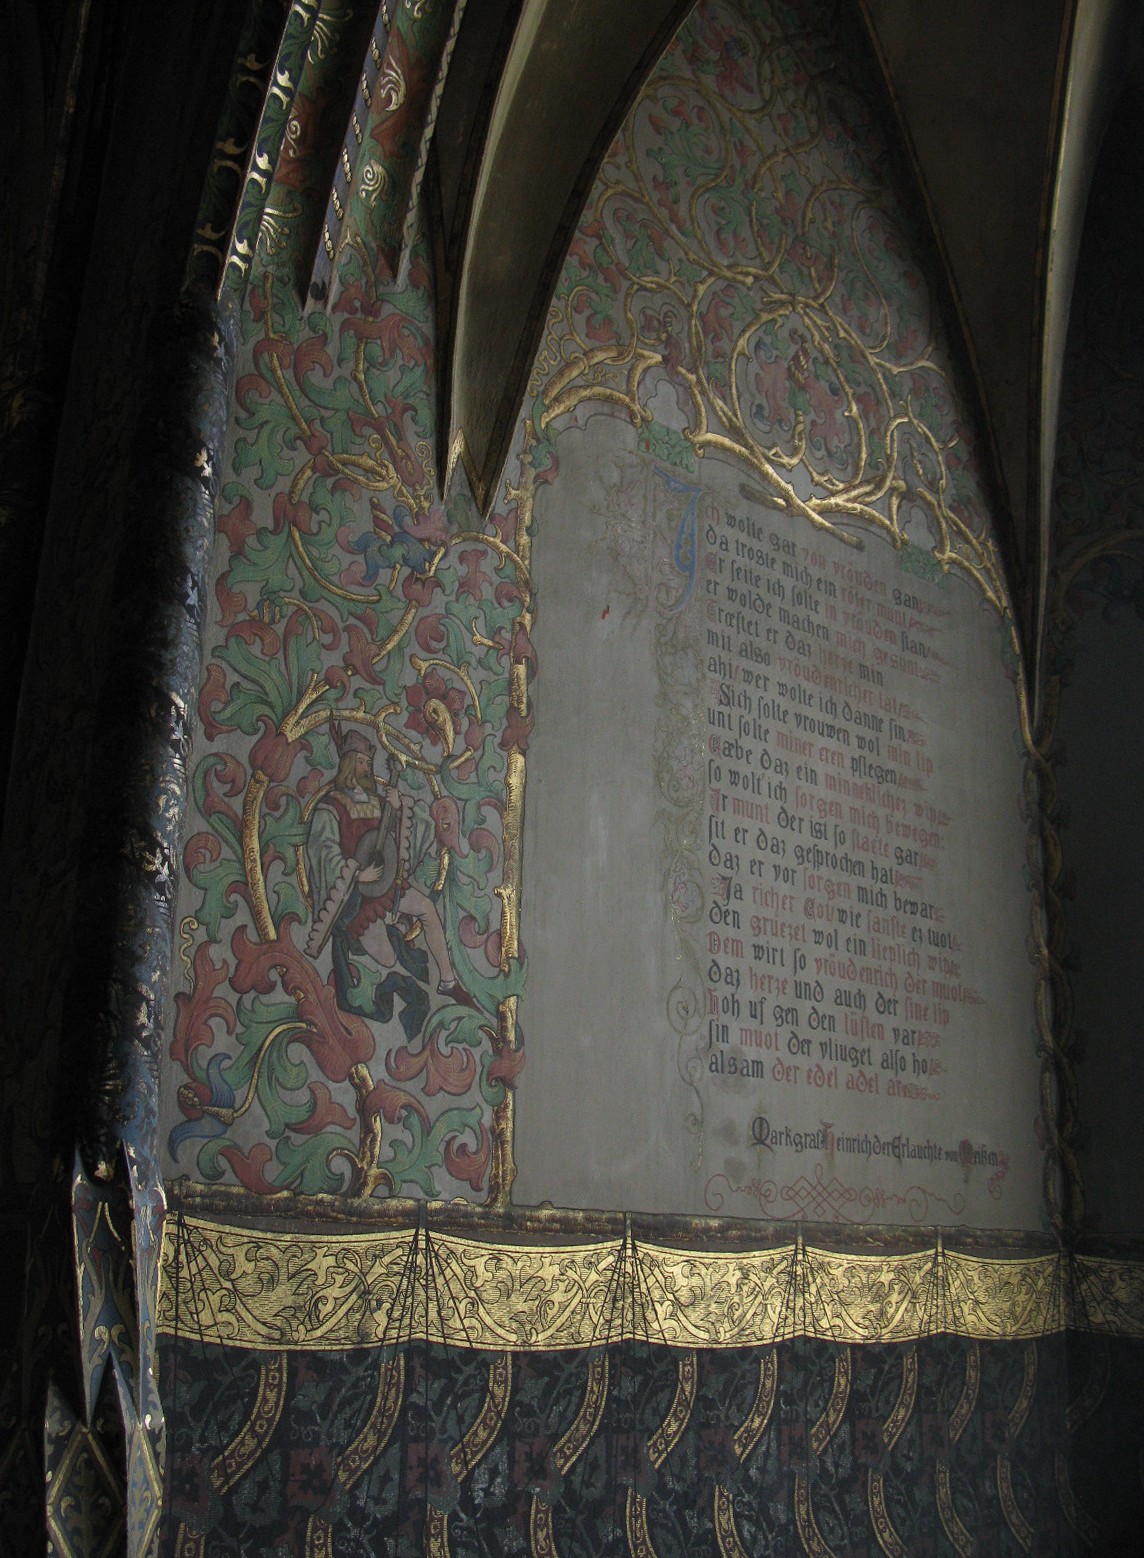 Ich wolte gar von vröuden gan
Da troste mich ein roter munt
Er seite ich solte in vröuden stan
er wolde machen mich gesunt
Trostet er daz herze min
mit also vröudenricher tat
ahi wer wolte ich danne sin
Sich solte vrouwen wol min lip
unt solte miner eren pflegen
Gæbe daz ein minneklichez wip
so wolt ich sorgen mich bewegen
Ir munt der ist so staete gar
sit er daz gesprochen hat
daz er vor sorgen mich bewar
Ja richer Got wie sanfte ez tuot
den gruezet wol ein lieplich wip
Dem wirt so vröudenrich der muot
daz herze und auch der sine lip
Hoh uf gen den lüften var
sin muot der vliuget also ho
alsam der edel adel ar
Markgraf Heinrich der Erlauchte von Meißen